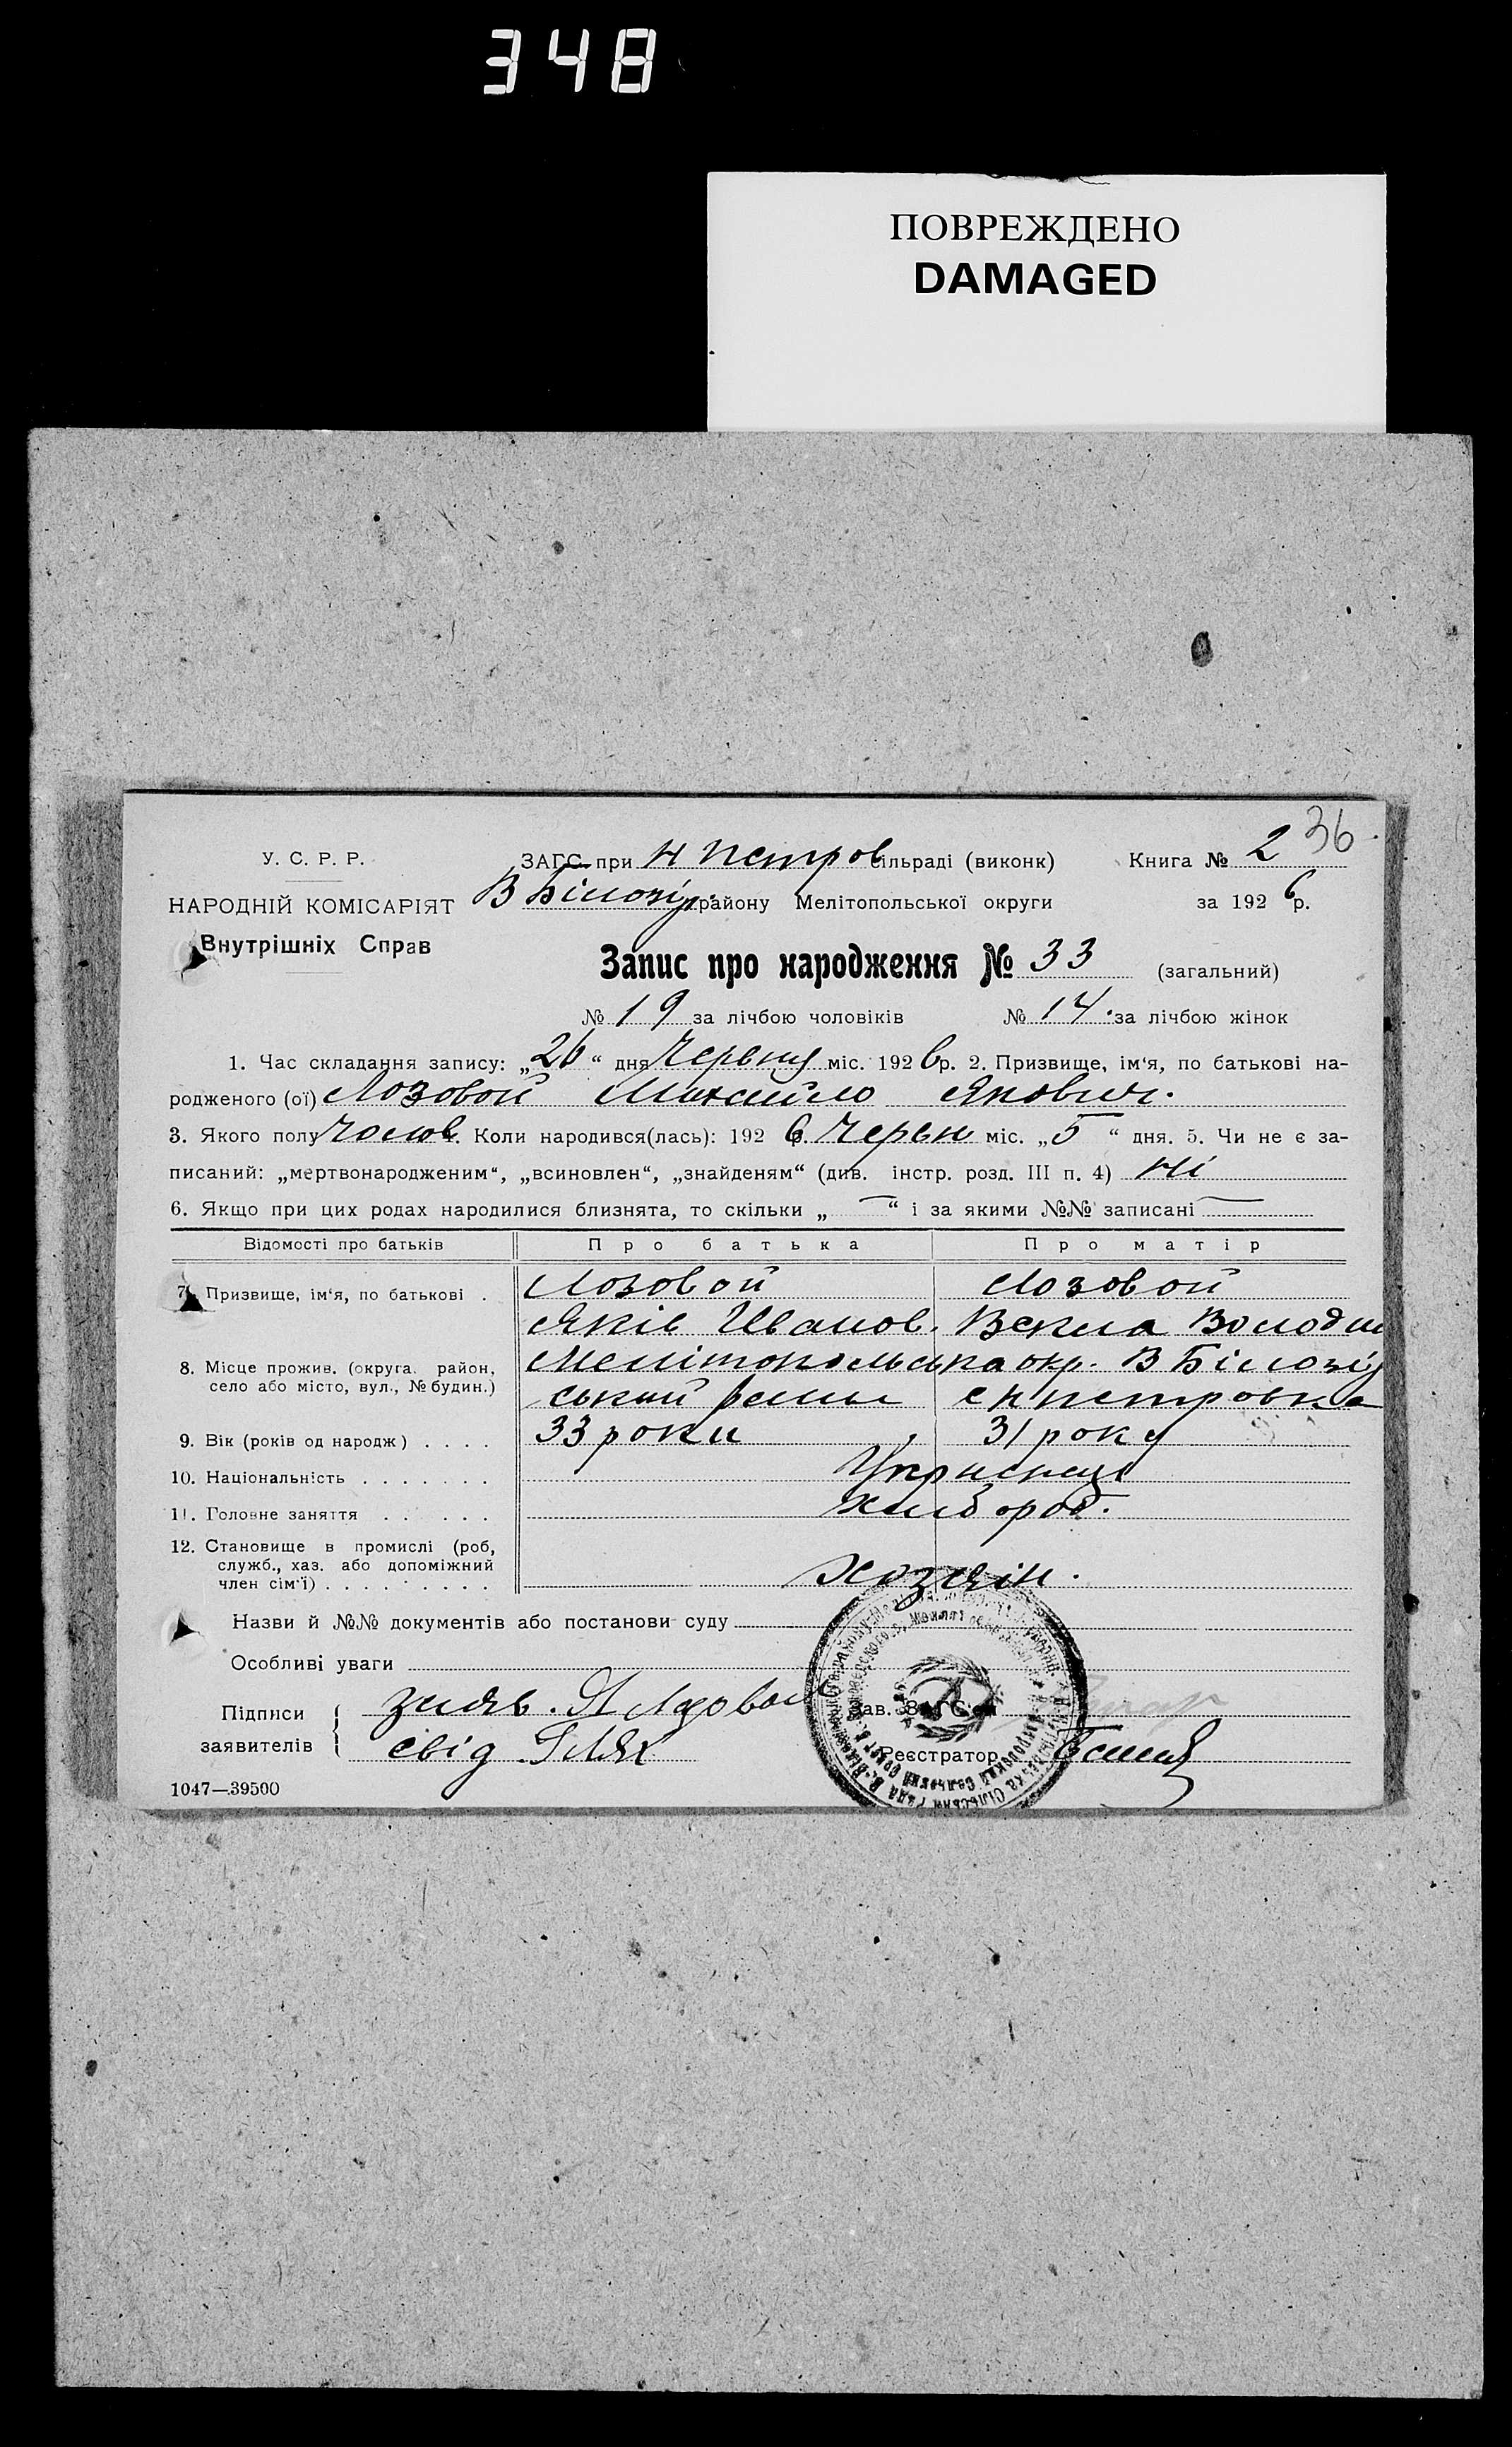 348
ПОВРЕЖДЕНО
DAMAGED
36
У. С. Р. Р. ЗАГС при Н Петров сільраді (виконк) Книга № 2
НАРОДНІЙ КОМІСАРІЯТ В Білозір району Мелітопольської округи за 1926 р.
Внутрішніх Справ
Запис про народження № 33 (загальний)
№ 19 за лічбою чоловіків № 14 за лічбою жінок
1. Час складання запису: „26“ дня Червня міс. 1926 р. 2. Призвище, ім‘я, по батькові на-
родженого (ої) Лозовой Михайло Якович.
3. Якого полу Чолов. Коли народився(лась): 1926 р. Червн міс. „5“ дня. 5. Чи не є за-
писаний: „мертвонародженим“, „всиновлен“, „знайденям“ (див. інстр. розд. III п. 4) ні
6. Якщо при цих родах народилися близнята, то скільки „ — “ і за якими №№ записані —
Відомості про батьків Про батька Про матір
7. Призвище, ім‘я, по батькові . Лозовой Лозовой
Яків Іванов. Векла Володим
8. Місце прожив. (округа, район, Мелітопольська окр. В Білозір
село або місто, вул., № будин.) ський район с Н петровка
9. Вік (років од народж) . . . . 33 роки 31 року
10. Національність . . . . . . . Українці
11. Головне заняття . . . . . хлібороб.
12. Становище в промислі (роб,
служб., хаз. або допоміжний
член сім‘ї) . . . . . . . . . Хозяїн.
Назви й №№ документів або постанови суду
Особливі уваги
Підписи заяв. Я Лозовой Зав. ЗАГС‘ом
заявителів свід Реєстратор
1047—39500